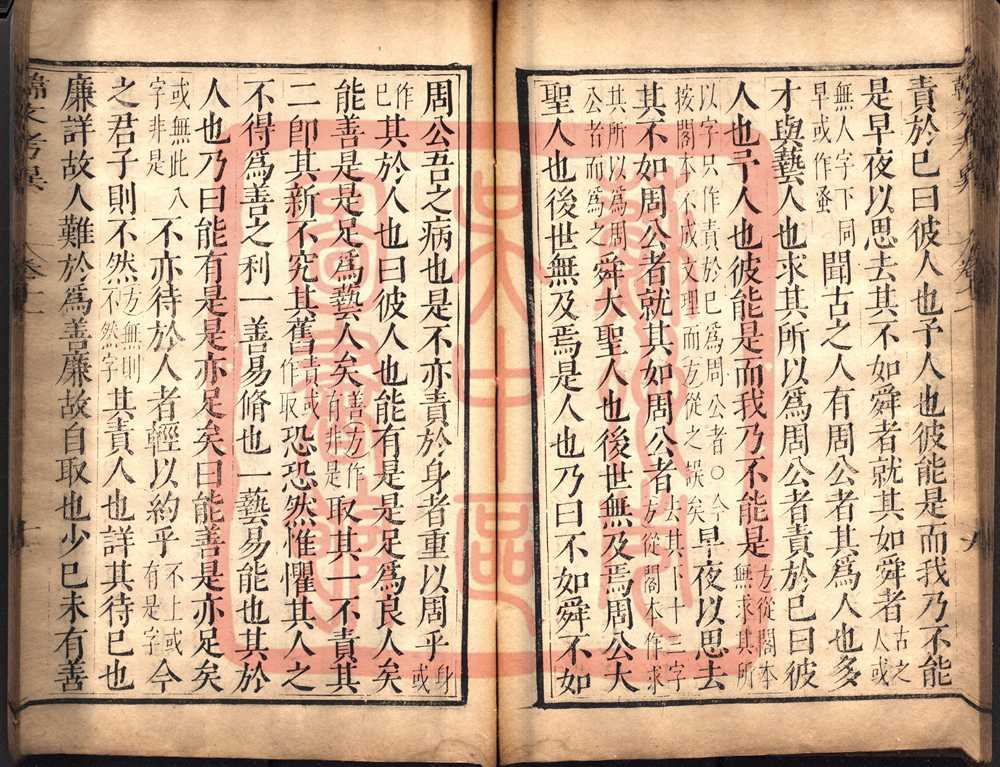 責於已曰彼人也予人也彼能是而我乃不能
是早夜以思去其不如舜者就其如舜者古之人或
無人字下同早或作蚤聞古之人有周公者其爲人也多
才與藝人也求其所以爲周公者責於已曰彼
人也予人也彼能是而我乃不能是方從閣本無求其所
以字只作責於已爲周公者○今按閣本不成文理而方從之誤矣早夜以思去
其不如周公者就其如周公者方從閣本作求其所以爲周公者而爲之去其下十三字
舜大聖人也後世無及焉周公大
聖人也後世無及焉是人也乃曰不如舜不如
周公吾之病也是不亦責於身者重以周乎身或
作已其於人也曰彼人也能有是是足爲良人矣
能善是是足爲藝人矣善方作有非是取其一不責其
二卽其新不究其舊責或作取恐恐然惟懼其人之
不得爲善之利一善易脩也一藝易能也其於
人也乃曰能有是是亦足矣曰能善是亦足矣
或無此入字非是不亦待於人者輕以約乎不上或有是字今
之君子則不然方無則不然字其責人也詳其待已也
廉詳故人難於爲善廉故自取也少已未有善